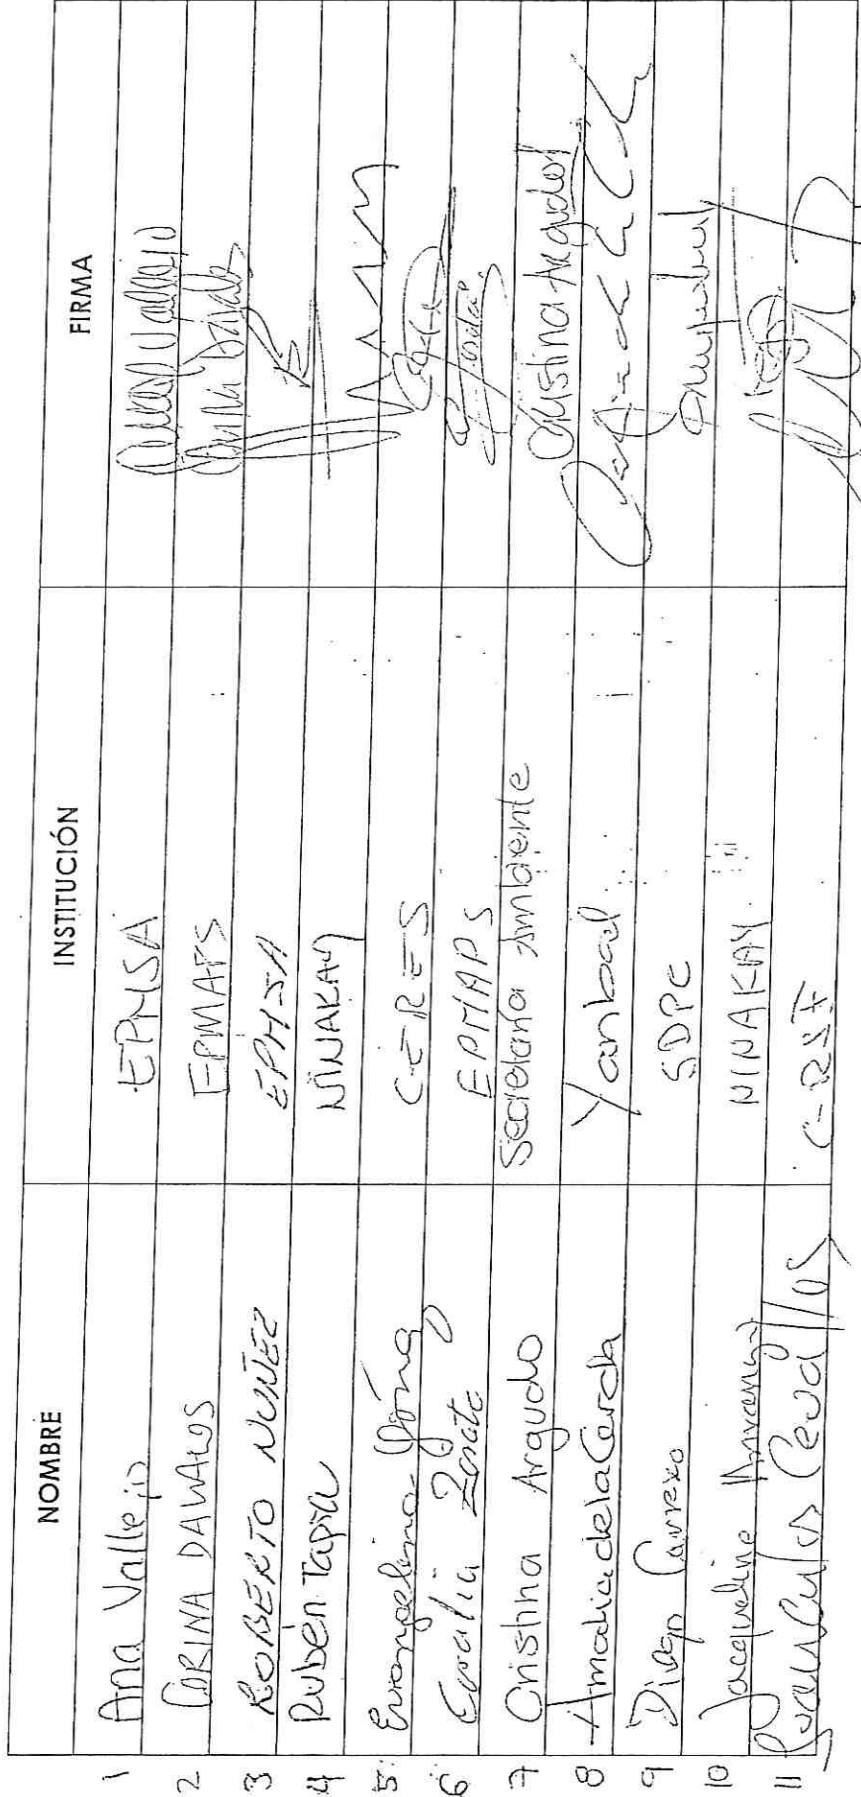 NOMBRE INSTITUCIÓN FIRMA
1 Ana Vallejo EPMSA Vallejo
2 CARINA DAVALOS EPMAPS
3 ROBERTO NUÑEZ EPMSA
4 Rubén Tapia NINAKAY
5. Evangelina CERES
6. Coralia Zarate EPMAPS
7 Cristina Argudo Secretaría Ambiente Cristina Argudo
8 Amalia de la Cerda Yanbal
9 Diego Carrera SDPC
10 Jacqueline NINAKAY
11 Juan Carlos Cevallos